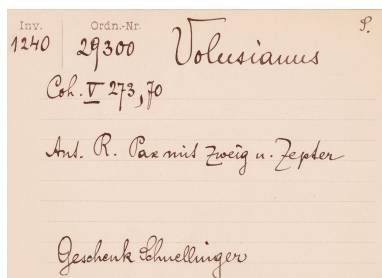 Inv. Ordn.-Nr. S.
1240 29300 Volusianus
Coh. V 273,70
Ant. R. Pax mit Zweig u. Zepter
Geschenk Schnellinger